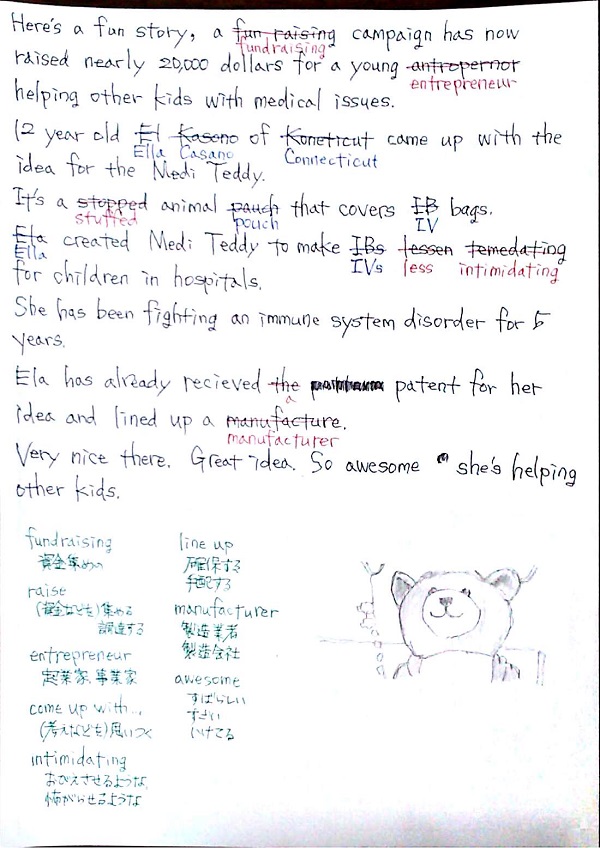 Here's a fun story, a fun raising campaign has now
fundraising
raised nearly 20,000 dollars for a young antropernor
entrepreneur
helping other kids with medical issues.
12 year old El Kasano of Koneticut came up with the
Ella Casano Connecticut
idea for the Medi Teddy.
It's a stopped animal pauch that covers IB bags.
stuffed pouch IV
Ela created Medi Teddy to make IBs lessen temedating
Ella IVs less intimidating
for children in hospitals.
She has been fighting an immune system disorder for 5
years.
Ela has already recieved the patent for her
a
idea and lined up a manufacture.
manufacturer
Very nice there. Great idea. So awesome she's helping
other kids.
fundraising
資金集めの
raise
(資金などを)集める
調達する
entrepreneur
起業家、事業家
come up with...
(考えなどを)思いつく
intimidating
おびえさせるような、
怖がらせるような
line up
確保する
手配する
manufacturer
製造業者
製造会社
awesome
すばらしい
すごい
いけてる